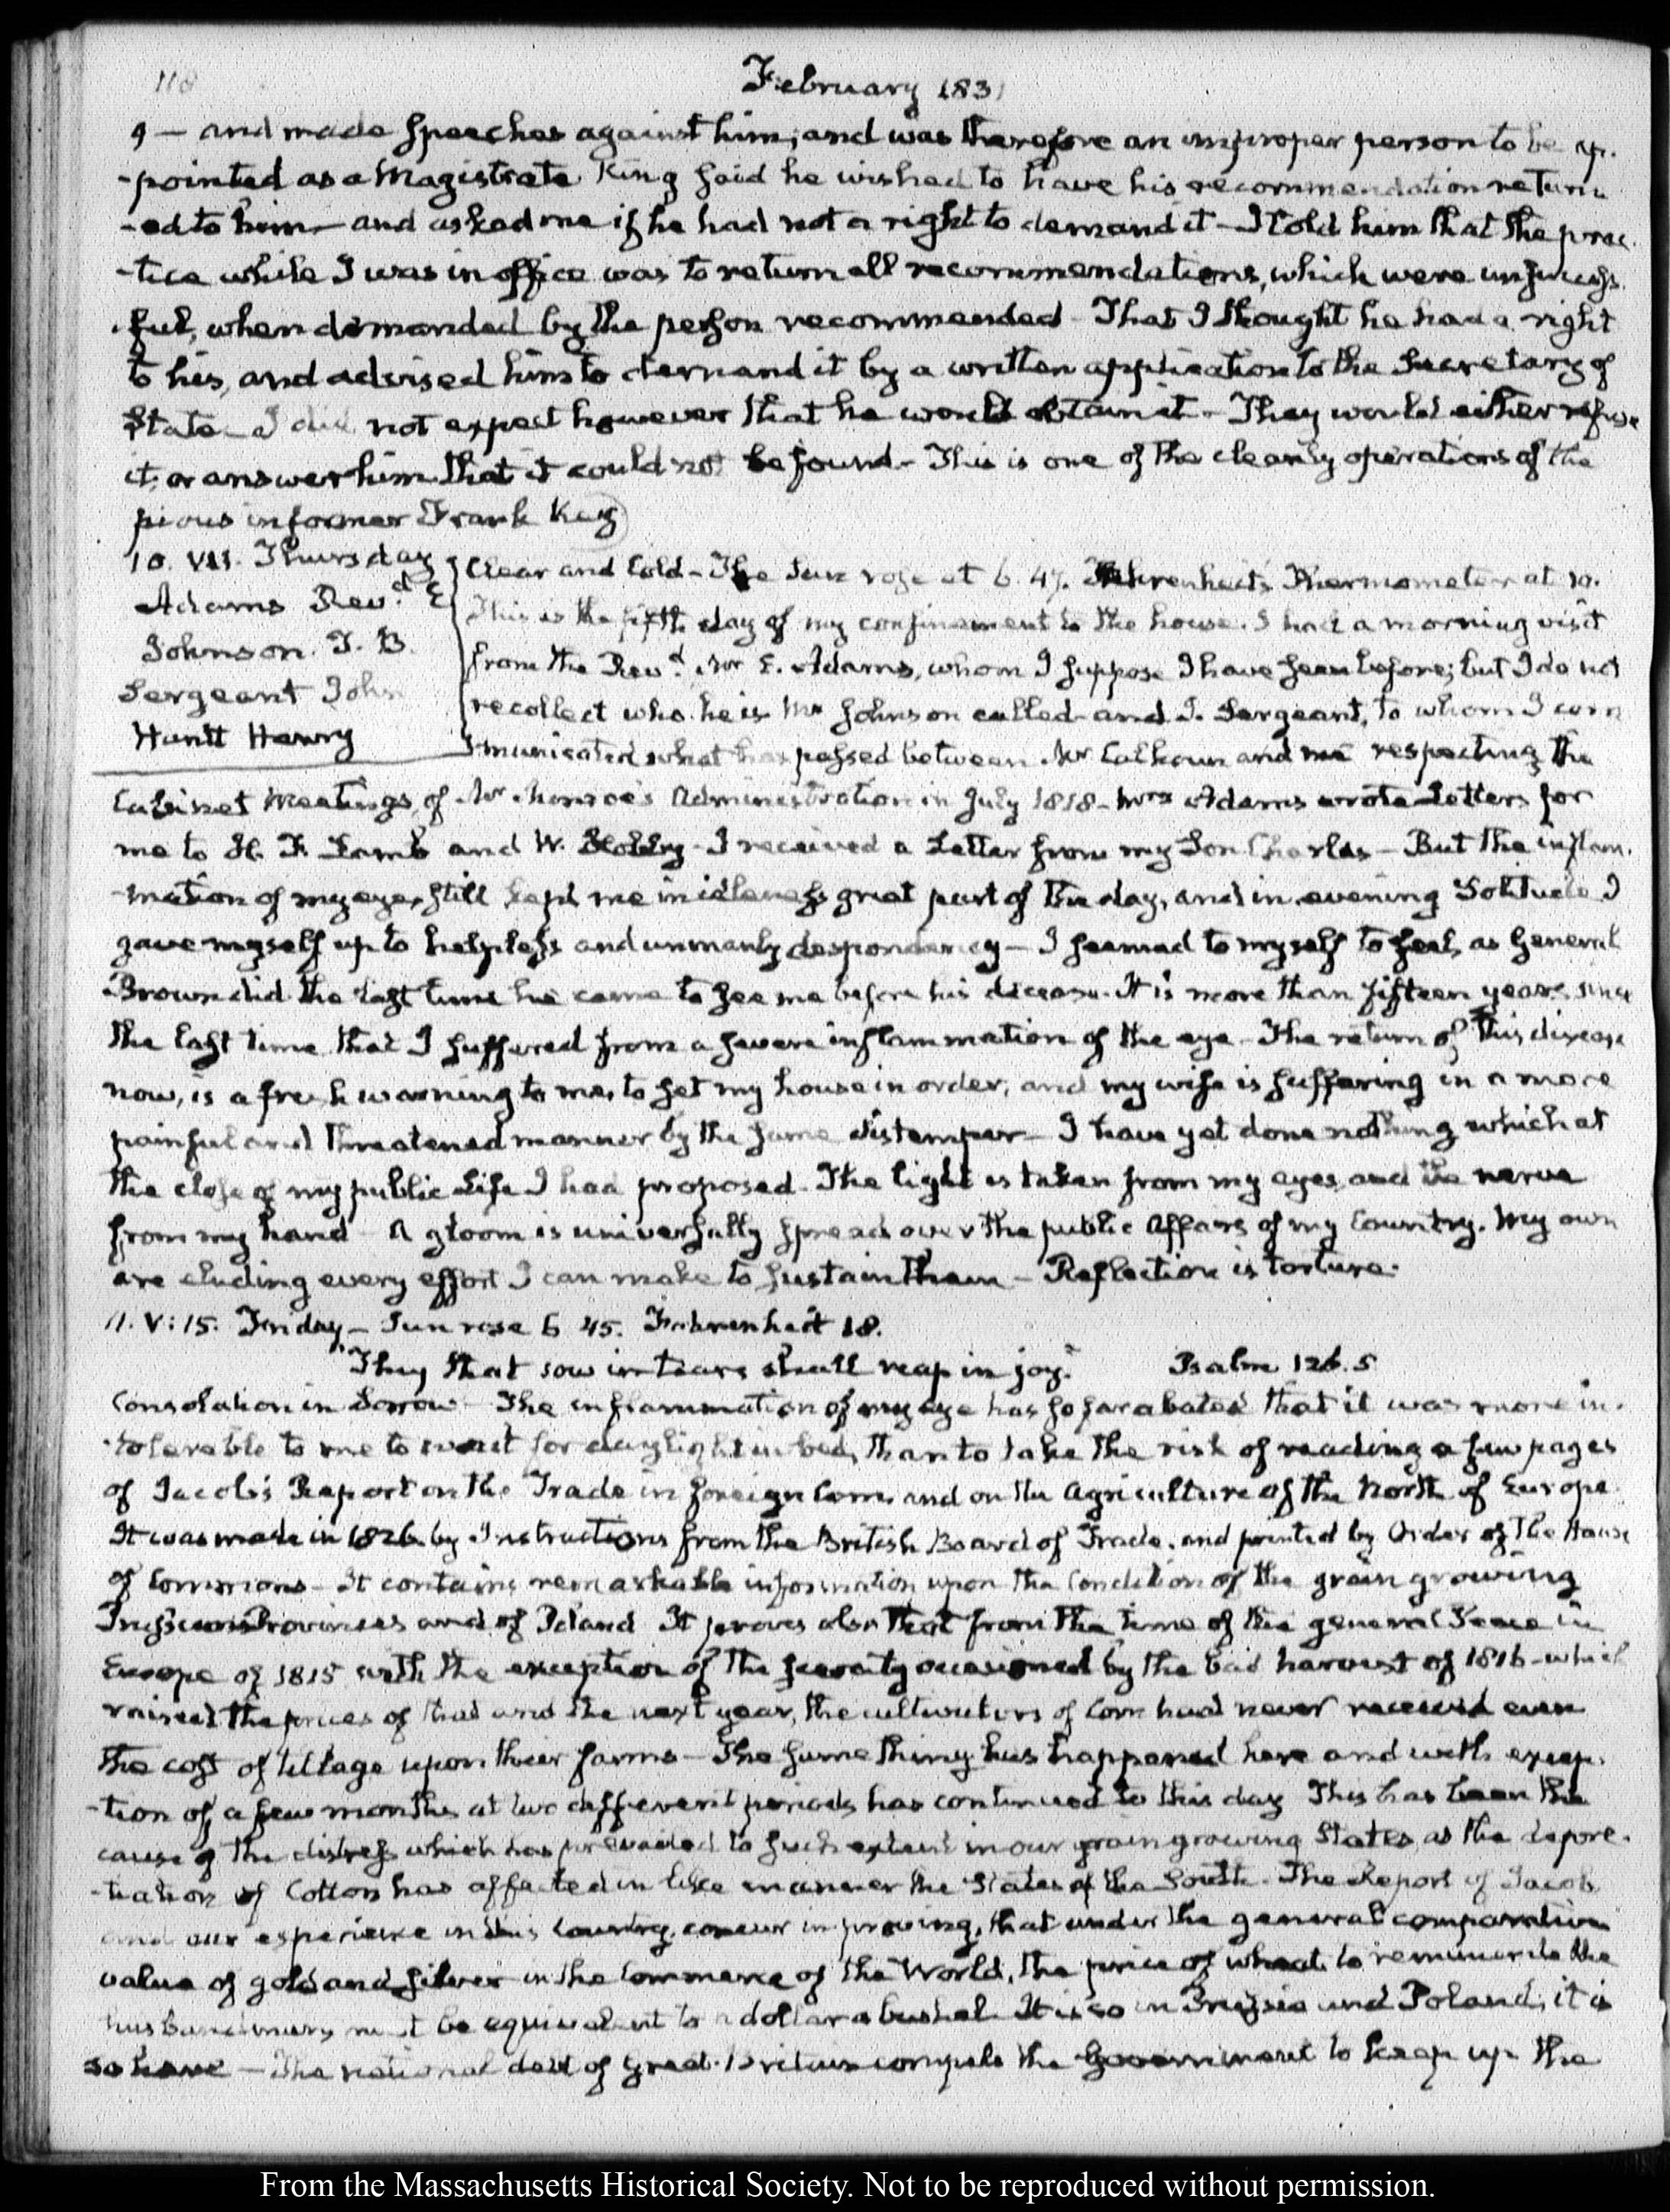 118
February 1831
9 — and made speeches against him; and was therefore an improper person to be ap-
-pointed as a Magistrate King said he wished to have his recommendation return
-ed to him — and asked me if he had not a right to demand it — I told him that the prac-
-tice while I was in office was to return all recommendations, which were unsuccess-
-ful, when demanded by the person recommended - That I thought he had a right
to his, and advised him to demand it by a written application to the Secretary of
State - I did not expect however that he would obtain it - They would either refuse
it, or answer him that it could not be found - This is one of the cleanly operations of the
pious informer Frank Key)
10. VII. Thursday
Adams Revd. E
Johnson. T. B.
Sergeant John
Huntt Henry
Clear and Cold - The Sun rose at 6. 47. Fahrenheit's Thermometer at 10.
This is the fifth day of my confinement to the house. I had a morning visit
from the Revd. Mr E. Adams, whom I suppose I have seen before; but I do not
recollect who he is Mr Johnson called and J. Sergeant, to whom I com
-municated what has passed between Mr Calhoun and me respecting the
Cabinet Meetings of Mr Monroe's Administration in July 1818 - Mrs Adams wrote Letters for
me to and W. I received a Letter from my Son Charles — But the inflam-
-mation of my eyes, still kept me in idleness great part of the day, and in evening Solitude I
gave myself up to helpless and unmanly despondency — I seemed to myself to feel, as General
Brown did the last time he came to see me before his decease. It is more than fifteen years since
the last time that I suffered from a severe inflammation of the eye - The return of this disease
now, is a fresh warning to me, to set my house in order; and my wife is suffering in a more
painful and threatened manner by the same distemper - I have yet done nothing which at
the close of my public Life I had proposed. The light is taken from my eyes and the nerve
from my hand A gloom is universally spread over the public Affairs of my Country. My own
are eluding every effort I can make to sustain them — Reflection is torture.
11. V:15. Friday — Sun rose 6 45. Fahrenheit 18.
"They that sow in tears shall reap in joy." Psalm 126. 5
Consolation in Sorrow - The inflammation of my eye has so far abated that it was more in-
-tolerable to me to wait for daylight in bed, than to take the risk of reading a few pages
of Jacob's Report on the Trade in foreign Corn, and on the Agriculture of the North of Europe
It was made in 1826. by Instructions from the British Board of Trade, and printed by Order of the House
of Commons - It contains remarkable information upon the Condition of the grain growing
Prussian Provinces and of Poland It proves also that from the time of the general Peace in
Europe of 1815 with the exception of the scarcity occasioned by the bad harvest of 1816 - which
raised the prices of that and the next year, the cultivators of Corn had never received even
the cost of tillage upon their farms — The same thing has happened here and with excep-
-tion of a few months at two different periods has continued to this day This has been the
cause of the distress which has prevailed to such extent in our grain growing States, as the depre-
-ciation of Cotton has affected in like manner the States of the South - The Report of Jacob
and our experience in this Country, concur in proving, that under the general comparative
value of gold and silver in the Commerce of the World, the price of wheat to remunerate the
husbandman, must be equivalent to a dollar a bushel It is so in Prussia and Poland; it is
so here — The national debt of Great Britain compels the Government to keep up the
From the Massachusetts Historical Society. Not to be reproduced without permission.